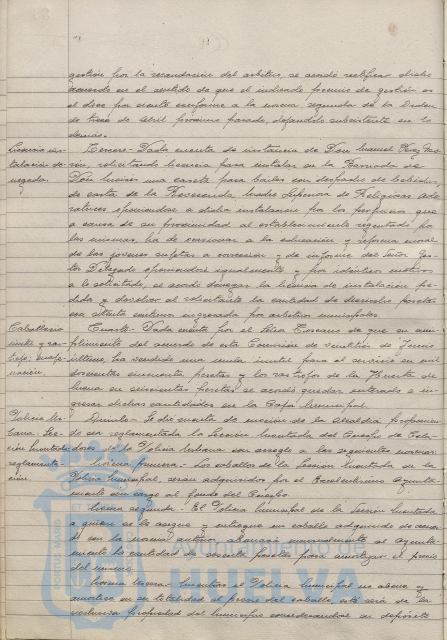 gestión por la recaudación del arbitrio, se acordó rectificar dicho
acuerdo en el sentido de que el indicado premio de gestión es
el doce por ciento conforme a la norma segunda de la Orden
de trece de Abril próximo pasado, dejándolo subsistente en lo
demás.
Licencia ins-
talación de-
negada.
Tercero = Dada cuenta de instancia de Don Manuel Pérez
solicitando licencia para instalar en la Barriada de
Don una caseta para bailes con despacho de bebidas,
de carta de la Reverenda Madre Superiora de Religiosas Ado-
ratrices oponiéndose a dicha instalación por los perjuicios que
a causa de su proximidad al establecimiento regentado por
las mismas, ha de ocasionar a la educación y reforma moral
de las jóvenes sujetas a corrección y de informe del Señor Ges-
tor Delegado oponiéndose igualmente y por idénticos motivos
a lo solicitado, se acordó denegar la licencia de instalación pe-
dida y devolver al solicitante la cantidad de pesetas
céntimos ingresada por arbitrios municipales.
Caballería
inútil y ras-
trojo:
Cuarto = Dada cuenta por el Señor de que en cum-
plimiento del acuerdo de esta Comisión de veintiseis de Junio
último, ha vendido una mula inútil para el servicio en mil
doscientas cincuenta pesetas y los rastrojos de la Huerta de
en seiscientas pesetas, se acordó quedar enterado e in-
gresar dichas cantidades en la Caja Municipal.
Policía Ur-
bana = Sec-
ción Montada
reglamenta-
ción
Quinto = Se dió cuenta de moción de la Alcaldía proponien-
do sea reglamentada la Sección Montada del Cuerpo de Cela-
dores de la Policía Urbana con arreglo a las siguientes normas:
Norma primera = Los caballos de la Sección Montada de la
Policía Municipal, serán adquiridos por el Excelentísimo Ayunta-
miento con cargo al fondo del Cuerpo.
Norma segunda = El Policía Municipal de la Sección Montada
a quien se le asigne y entregue un caballo adquirido de acuer-
do con la norma anterior, abonará mensualmente al Ayunta-
miento la cantidad de pesetas para amortizar el precio
del mismo.
Norma tercera = Mientras el Policía Municipal no abone y
amortice en su totalidad el precio del caballo, éste será de la
exclusiva propiedad del Municipio considerándose en depósito
PORTUS MARIS
HUELVA